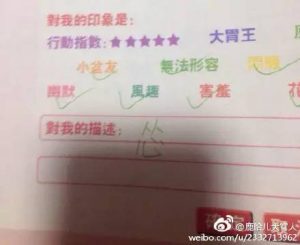 對我的印象是:
行動指數:★★★★★ 大胃王
小盆友 無法形容
幽默 風趣 害羞 花
對我的描述: 怂
weibo.com/u/2332713962